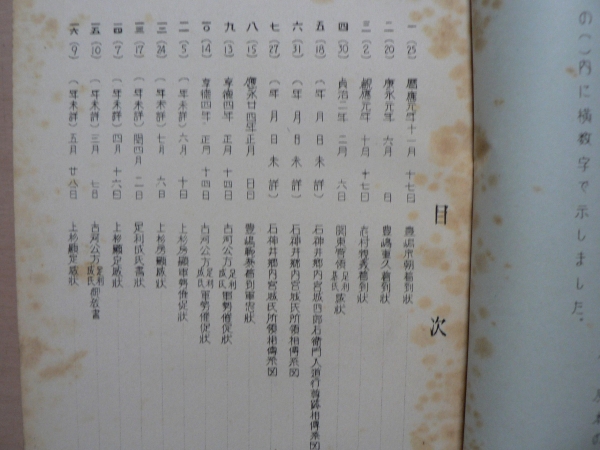 の( )内に横数字で示しました。
目次
一 (25) 暦應元年十一月十七日 豊嶋宗朝着到状
二 (20) 康永元年 六月 日 豊嶋重久着到状
三 (2) 観應元年 十月十七日 着到状
四 (30) 貞治二年 二月 六日 関東管領足利基氏感状
五 (18) (年 月 日 未詳) 石神井郷内宮城四郎右衛門入道行尊跡相傳系図
六 (31) (年 月 日 未詳) 石神井郷内宮城氏所領相傳系図
七 (27) (年 月 日 未詳) 石神井郷内宮城氏所領相傳系図
八 (15) 應永廿四年正月 日 豊嶋範泰着到軍忠状
九 (13) 享徳四年 正月 十四日 古河公方足利成氏軍勢催促状
一〇 (14) 享徳四年 正月 十四日 古河公方足利成氏軍勢催促状
一一 (5) (年未詳) 六月 十日 上杉房顕軍勢催促状
一二 (24) (年未詳) 七月 六日 上杉房顕感状
一三 (17) (年未詳) 閏四月 二日 足利成氏書状
一四 (7) (年未詳) 四月 十六日 上杉顕定感状
一五 (10) (年未詳) 三月 七日 古河公方足利成氏御教書
一六 (9) (年未詳) 五月 廿八日 上杉顕定感状